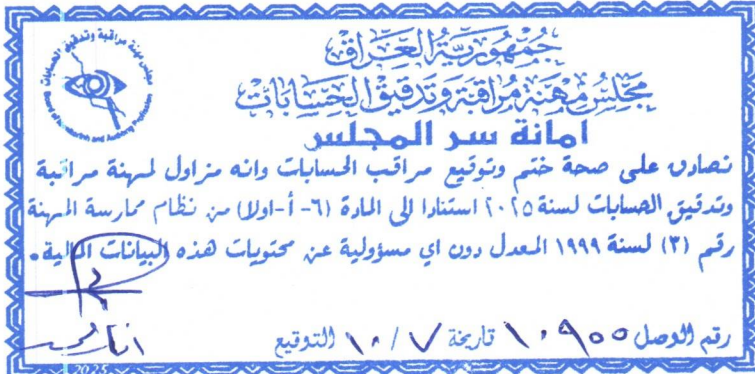 جمهورية العراق
مجلس مهنة مراقبة وتدقيق الحسابات
امانة سر المجلس
نصادق على صحة ختم وتوقيع مراقب الحسابات وانه مزاول لمهنة مراقبة
وتدقيق الحسابات لسنة ٢٠٢٥ استنادا الى المادة (٦- أ-اولا) من نظام ممارسة المهنة
رقم (٣) لسنة ١٩٩٩ المعدل دون اي مسؤولية عن محتويات هذه البيانات المالية.
رقم الوصل ١٠٩٥٥ تاريخة ٧ / ١٠ التوقيع
2025